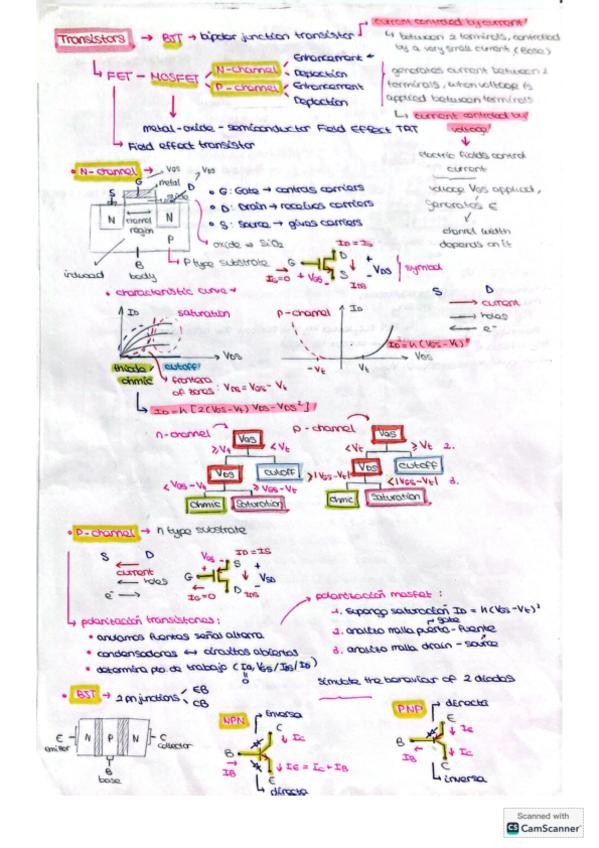 Transistors → BJT → bipolar junction transistor
current controlled by current
between 2 terminals, controlled
by a very small current (Base)
FET - MOSFET
N-channel
Enhancement
Depletion
P-channel
Enhancement
Depletion
generates current between 2
terminals, when voltage is
applied between terminals
current controlled by
voltage
metal-oxide-semiconductor Field Effect TRT
Field effect transistor
electric fields control
current
voltage VGS applied,
generates E
channel width
depends on it
• N-channel
VGS
VDS
G
metal
S
D
oxide
N
channel
region
N
P
B
body
induced
• G: Gate → controls carriers
• D: Drain → receives carriers
• S: Source → gives carriers
oxide → SiO2
P type substrate
ID = IS
G
D
S
IG=0
+ VGS -
VDS
IDS
symbol
S D
→ current
holes
← e-
• characteristic curve
ID
saturation
VDS
triode/
ohmic
cutoff
frontera
of zones: VDS = VGS - Vt
p-channel
ID
-Vt
Vt
VGS
ID = K (VGS-Vt)²
ID = K [2(VGS-Vt) VDS - VDS²]
n-channel
VGS
≥Vt
<Vt
VDS
cutoff
< VGS-Vt
≥ VGS-Vt
ohmic
saturation
p-channel
VGS
<Vt
≥Vt 2.
VDS
cutoff
>|VGS-Vt|
<|VGS-Vt|
ohmic
saturation
• P-channel → n type substrate
S D
← current
← holes
e- →
VGS
ID = IS
S
G
D
IG=0
VSD
IDS
polarización transistores:
• anulamos fuentes señal alterna
• condensadores ↔ circuitos abiertos
• determina pto. de trabajo (IG, VGS / IDS / ID)
0
polarización mosfet:
1. supongo saturación ID = K(VGS-Vt)²
gate
2. analizo malla puerta-fuente
3. analizo malla drain - source
simulate the behaviour of 2 diodes
• BJT → 2 pn junctions
EB
CB
E
emitter
N P N
C
collector
B
base
NPN
inversa
C
IC
B
IB
E
IE = IC + IB
directa
PNP
directa
E
IE
B
IB
C
IC
inversa
Scanned with
CS CamScanner